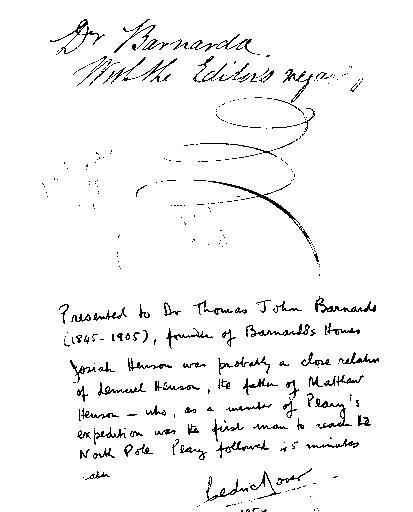 Dr Barnardo
With the Editors regar
Presented to Dr Thomas John Barnardo
(1845-1905), founder of Barnardo's Homes
Josiah Henson was probably a close relation
of Lemuel Henson, the father of Matthew
Henson - who, as a member of Peary's
expedition was the first man to reach the
North Pole Peary followed 45 minutes
later
Cedric Dover